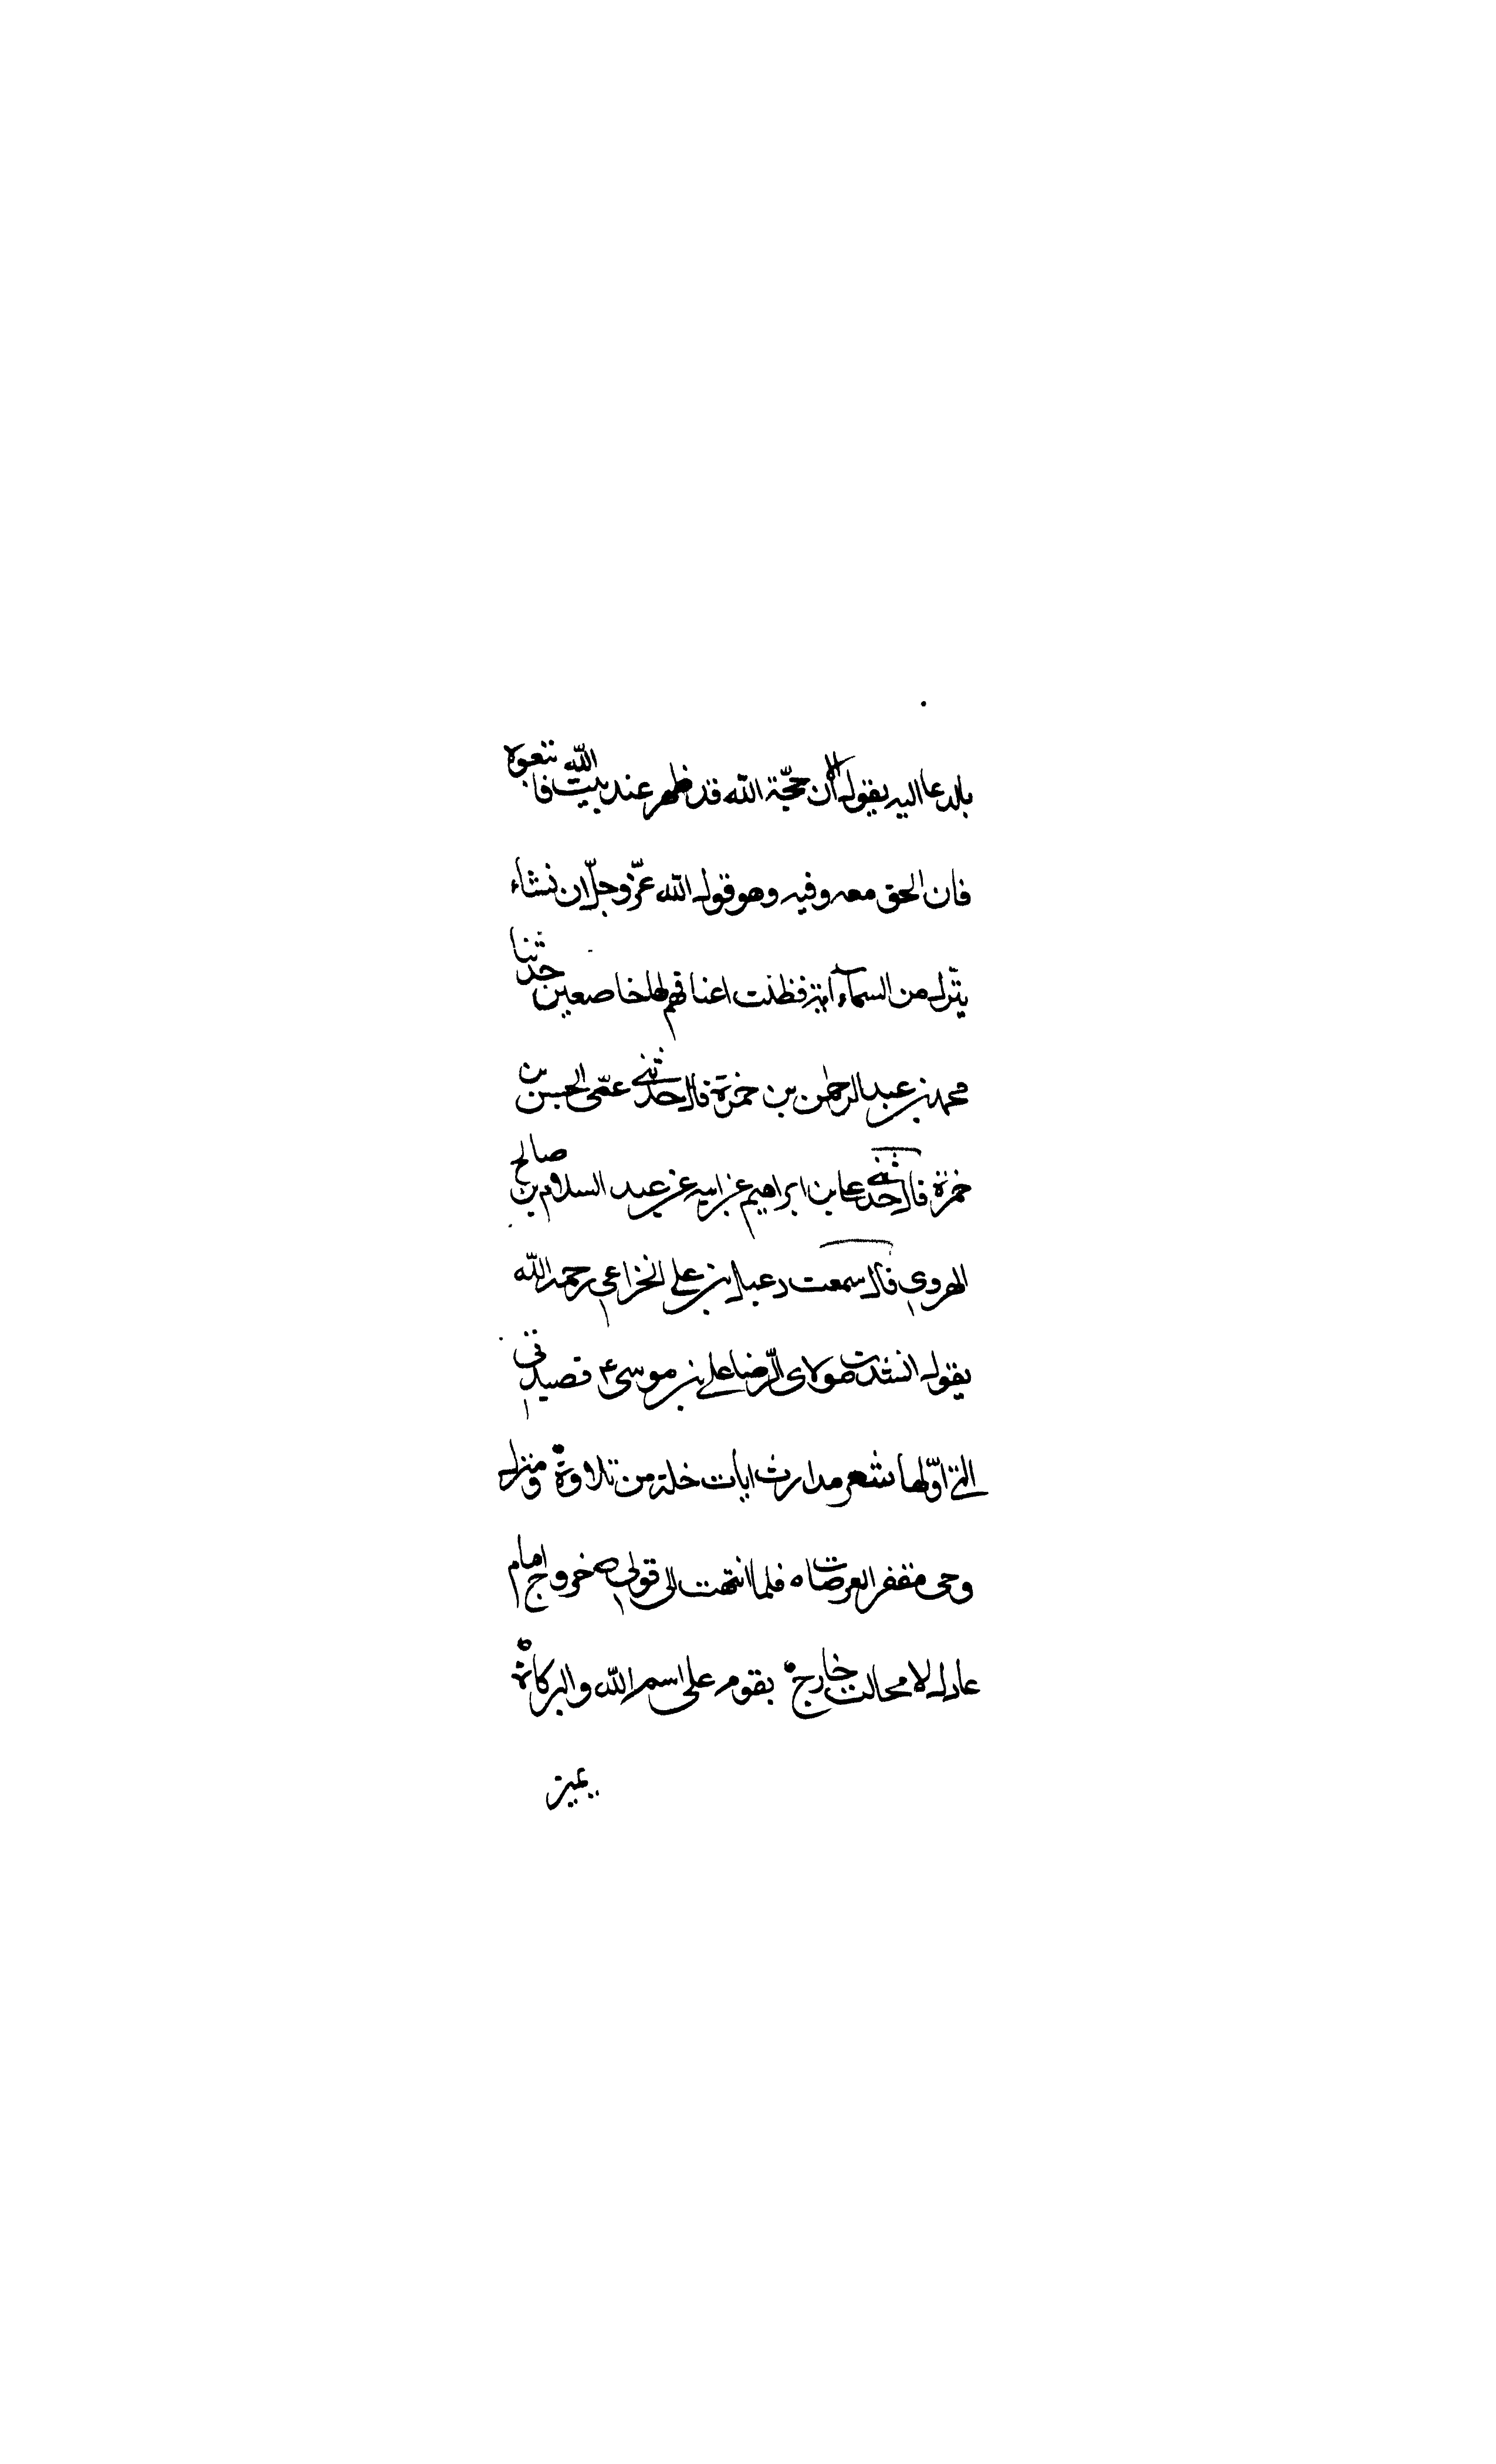 بالدعا اليه يقول الا ان حجّة الله قد ظهر عند بيت الله فاتبعوه
فان الحق معه وفيه وهو قول الله عزّ وجلّ ان نشاء
ينّزل من السمآء اية فظلت اعناقهم لها خاضعين حدثنا
محمد بن عبد الرحمن بن حمزة قال حدثنى عمّى الحسن بن
حمزة قال حدثنى على بن ابراهيم عن ابيه عن عبد السلام بن صالح
الهروي قال سمعت دعبل بن على الخزاعي رحمه الله
يقول انشدت مولاى الرّضا على بن موسى ع قصيدتي
التى اوّلها شعر مدارث ايات خلة من تلاوة ومنزل
وحى مقفر العرصات فلما انتهت الى قولي خروج امام
عادل لا محالت خارج يقوم على اسم الله والبركاة
يميز